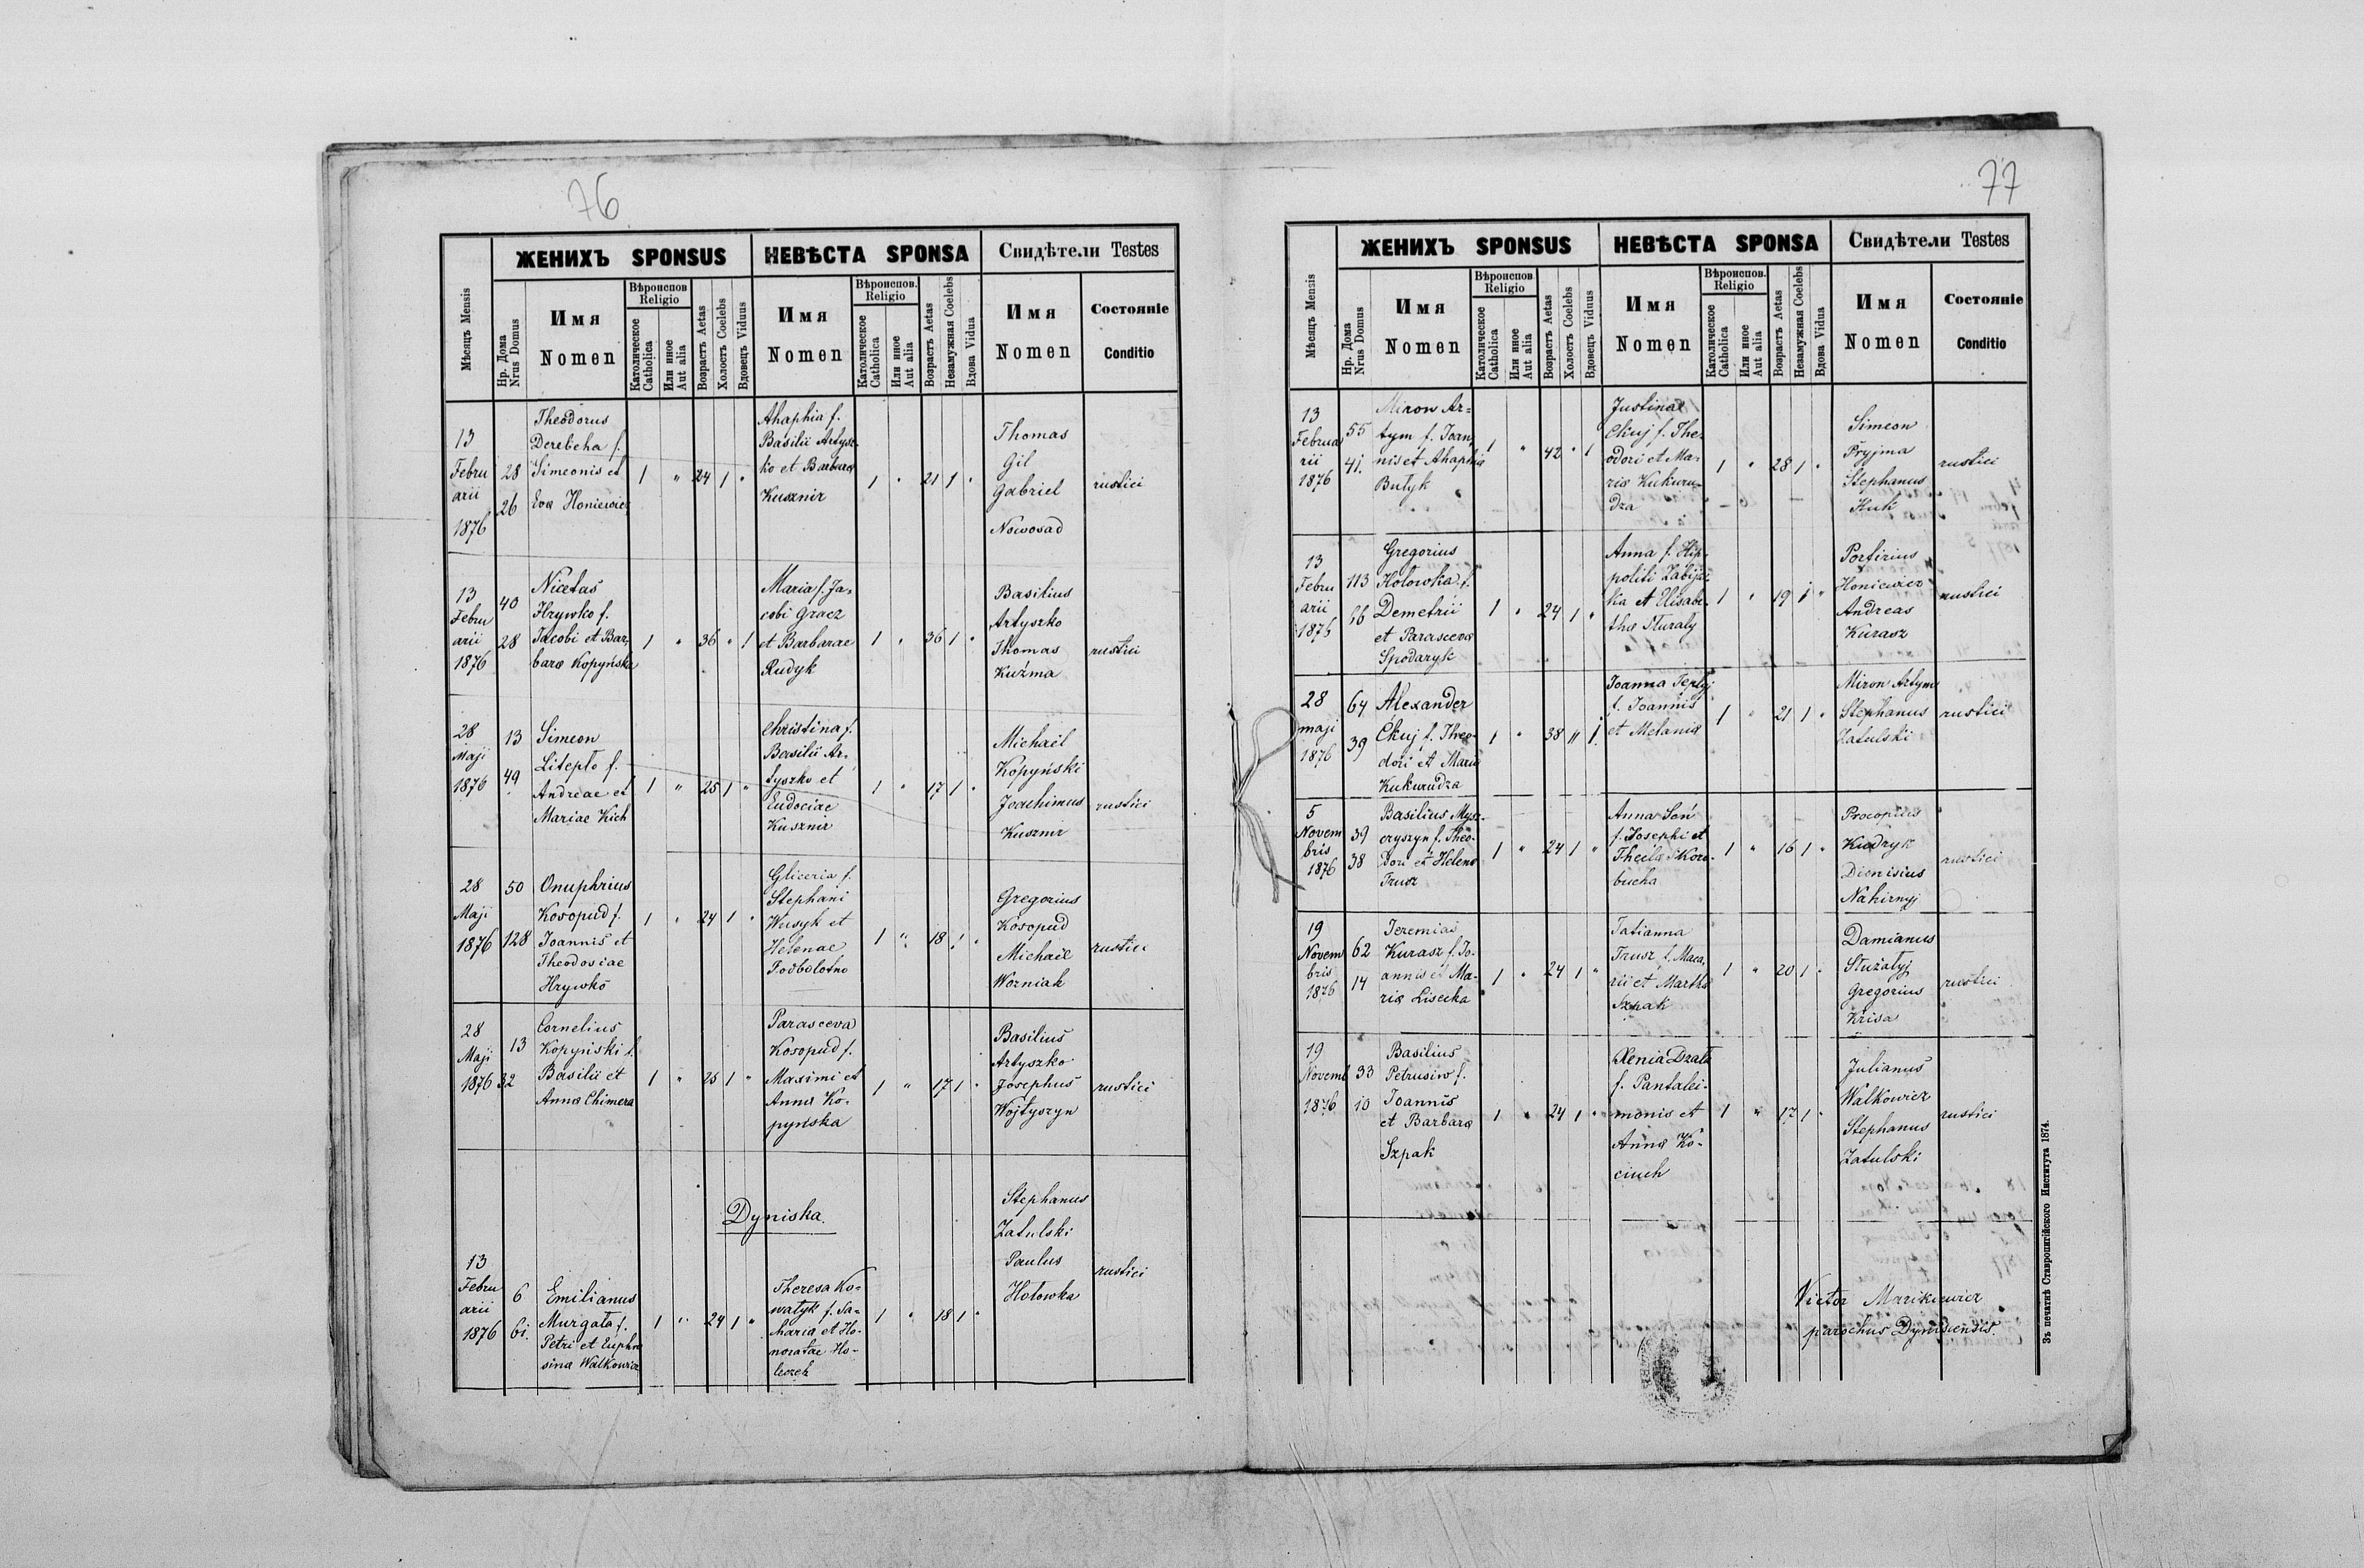 76
ЖЕНИХЪ SPONSUS
НЕВѢСТА SPONSA
Свидѣтели Testes
Мѣсяцъ Mensis
Нр. Дома
Nrus Domus
Имя
Nomen
Вѣроиспов
Religio
Католическое
Catholica
Или иное
Aut alia
Возрастъ Aetas
Холостъ Coelebs
Вдовецъ Viduus
Имя
Nomen
Вѣроиспов.
Religio
Католическое
Catholica
Или иное
Aut alia
Возрастъ Aetas
Незамужная Coelebs
Вдова Vidua
Имя
Nomen
Состояніе
Conditio
13
Febru
arii
1876
28
26
Theodorus
Derebeha f.
Simeonis et
Eva Honiewicz
1 " 24 1 "
Ahaphia f.
Basilii Artysz-
ko et Barbara
Kusznir
1 " 21 1 "
Thomas
Gil
Gabriel
Nowosad
rustici
13
Febru
arii
1876
40
28
Nicetas
Hrywko f.
Jacobi et Bar,
bara Kopyńska
1 " 36 " 1
Maria f. Ja=
cobi Gracz
et Barbarae
Rudyk
1 " 36 1 "
Basilius
Artyszko
Thomas
Kuźma
rustici
28
Maji
1876
13
49
Simeon
Litepło f.
Andreae et
Mariae Kich
1 " 25 1 "
Christina f.
Basilii Ar-
tyszko et
Eudociae
Kusznir
1 " 17 1 "
Michaël
Kopyński
Joachimus
Kusznir
rustici
28
Maji
1876
50
128
Onuphrius
Kosopud f.
Joannis et
Theodosiae
Hrywko
1 " 24 1 "
Gliceria f.
Stephani
Wusyk et
Helenae
Podbołotno
1 " 18 1 "
Gregorius
Kosopud
Michaël
Worniak
rustici
28
Maji
1876
13
32
Cornelius
Kopyński f.
Basilii et
Anna Chimera
1 " 25 1 "
Parasceva
Kosopud f.
Maximi et
Anna Ko-
pyńska
1 " 17 1 "
Basilius
Artyszko
Josephus
Wojtyszyn
rustici
Dyniska.
13
Febru
arii
1876
6
61.
Emilianus
Murgała f.
Petri et Euphro
sina Walkowicz
1 " 24 1 "
Theresa Ko-
watyk f. Za-
haria et Ho-
noratae Ho-
leczek
1 " 18 1 "
Stephanus
Zatulski
Paulus
Hołowka
rustici
77
ЖЕНИХЪ SPONSUS
НЕВѢСТА SPONSA
Свидѣтели Testes
Мѣсяцъ Mensis
Нр. Дома
Nrus Domus
Имя
Nomen
Вѣроиспов
Religio
Католическое
Catholica
Или иное
Aut alia
Возрастъ Aetas
Холостъ Coelebs
Вдовецъ Viduus
Имя
Nomen
Вѣроиспов.
Religio
Католическое
Catholica
Или иное
Aut alia
Возрастъ Aetas
Незамужная Coelebs
Вдова Vidua
Имя
Nomen
Состояніе
Conditio
13
Februa
rii
1876
55
41.
Miron Ar=
tym f. Joan,
nis et Ahaphia
Butyk
1 " 42 " 1
Justinae
Ckuj f. The-
odori et Ma-
ria Kukuru-
dza
1 " 28 1 "
Simeon
Pryjma
Stephanus
Kuk
rustici
13
Febru
arii
1876
113
66
Gregorius
Hołowka f.
Demetrii
et Parasceva
Spodaryk
1 " 24 1 "
Anna f. Hip-
politi Zabija-
ka et Elisabe-
tha Sturały
1 " 19 1 "
Porfirius
Honiewicz
Andreas
Kurasz
rustici
28
maji
1876
64
39
Alexander
Ckuj f. Theo-
dori et Maria
Kukurudza
1 " 38 " 1.
Joanna Tepłyj
f. Joannis
et Melania
1 " 21 1 "
Miron Artym
Stephanus
Zatulski
rustici
5
Novem
bris
1876
39
38
Basilius Mysz-
czyszyn f. Theo-
dori et Helena
Trusz
1 " 24 1 "
Anna Soń
f. Josephi et
Thecla Skoro-
bucha
1 " 16 1 "
Procopius
Kudryk
Dionisius
Nahirnyj
rustici
19
Novem
bris
1876
62
14
Jeremias
Kurasz f. Jo-
annis et Ma-
ria Lisecka
1 " 24 1 "
Tatianna
Trusz f. Maca,
rii et Martha
Szpak
1 " 20 1 "
Damianus
Stużałyj
Gregorius
Krisa
rustici
19
Novemb
1876
33
10
Basilius
Petrusiw f.
Joannis
et Barbara
Szpak
1 " 24 1 "
Xenia Dzała
f. Pantalei-
monis et
Anna Ko-
ciuch
1 " 17 1 "
Julianus
Walkowicz
Stephanus
Zatulski
rustici
Victor Mazikiewicz
parochus Dynisiensis.
Зъ печатнѣ Ставропигійского Института 1874.